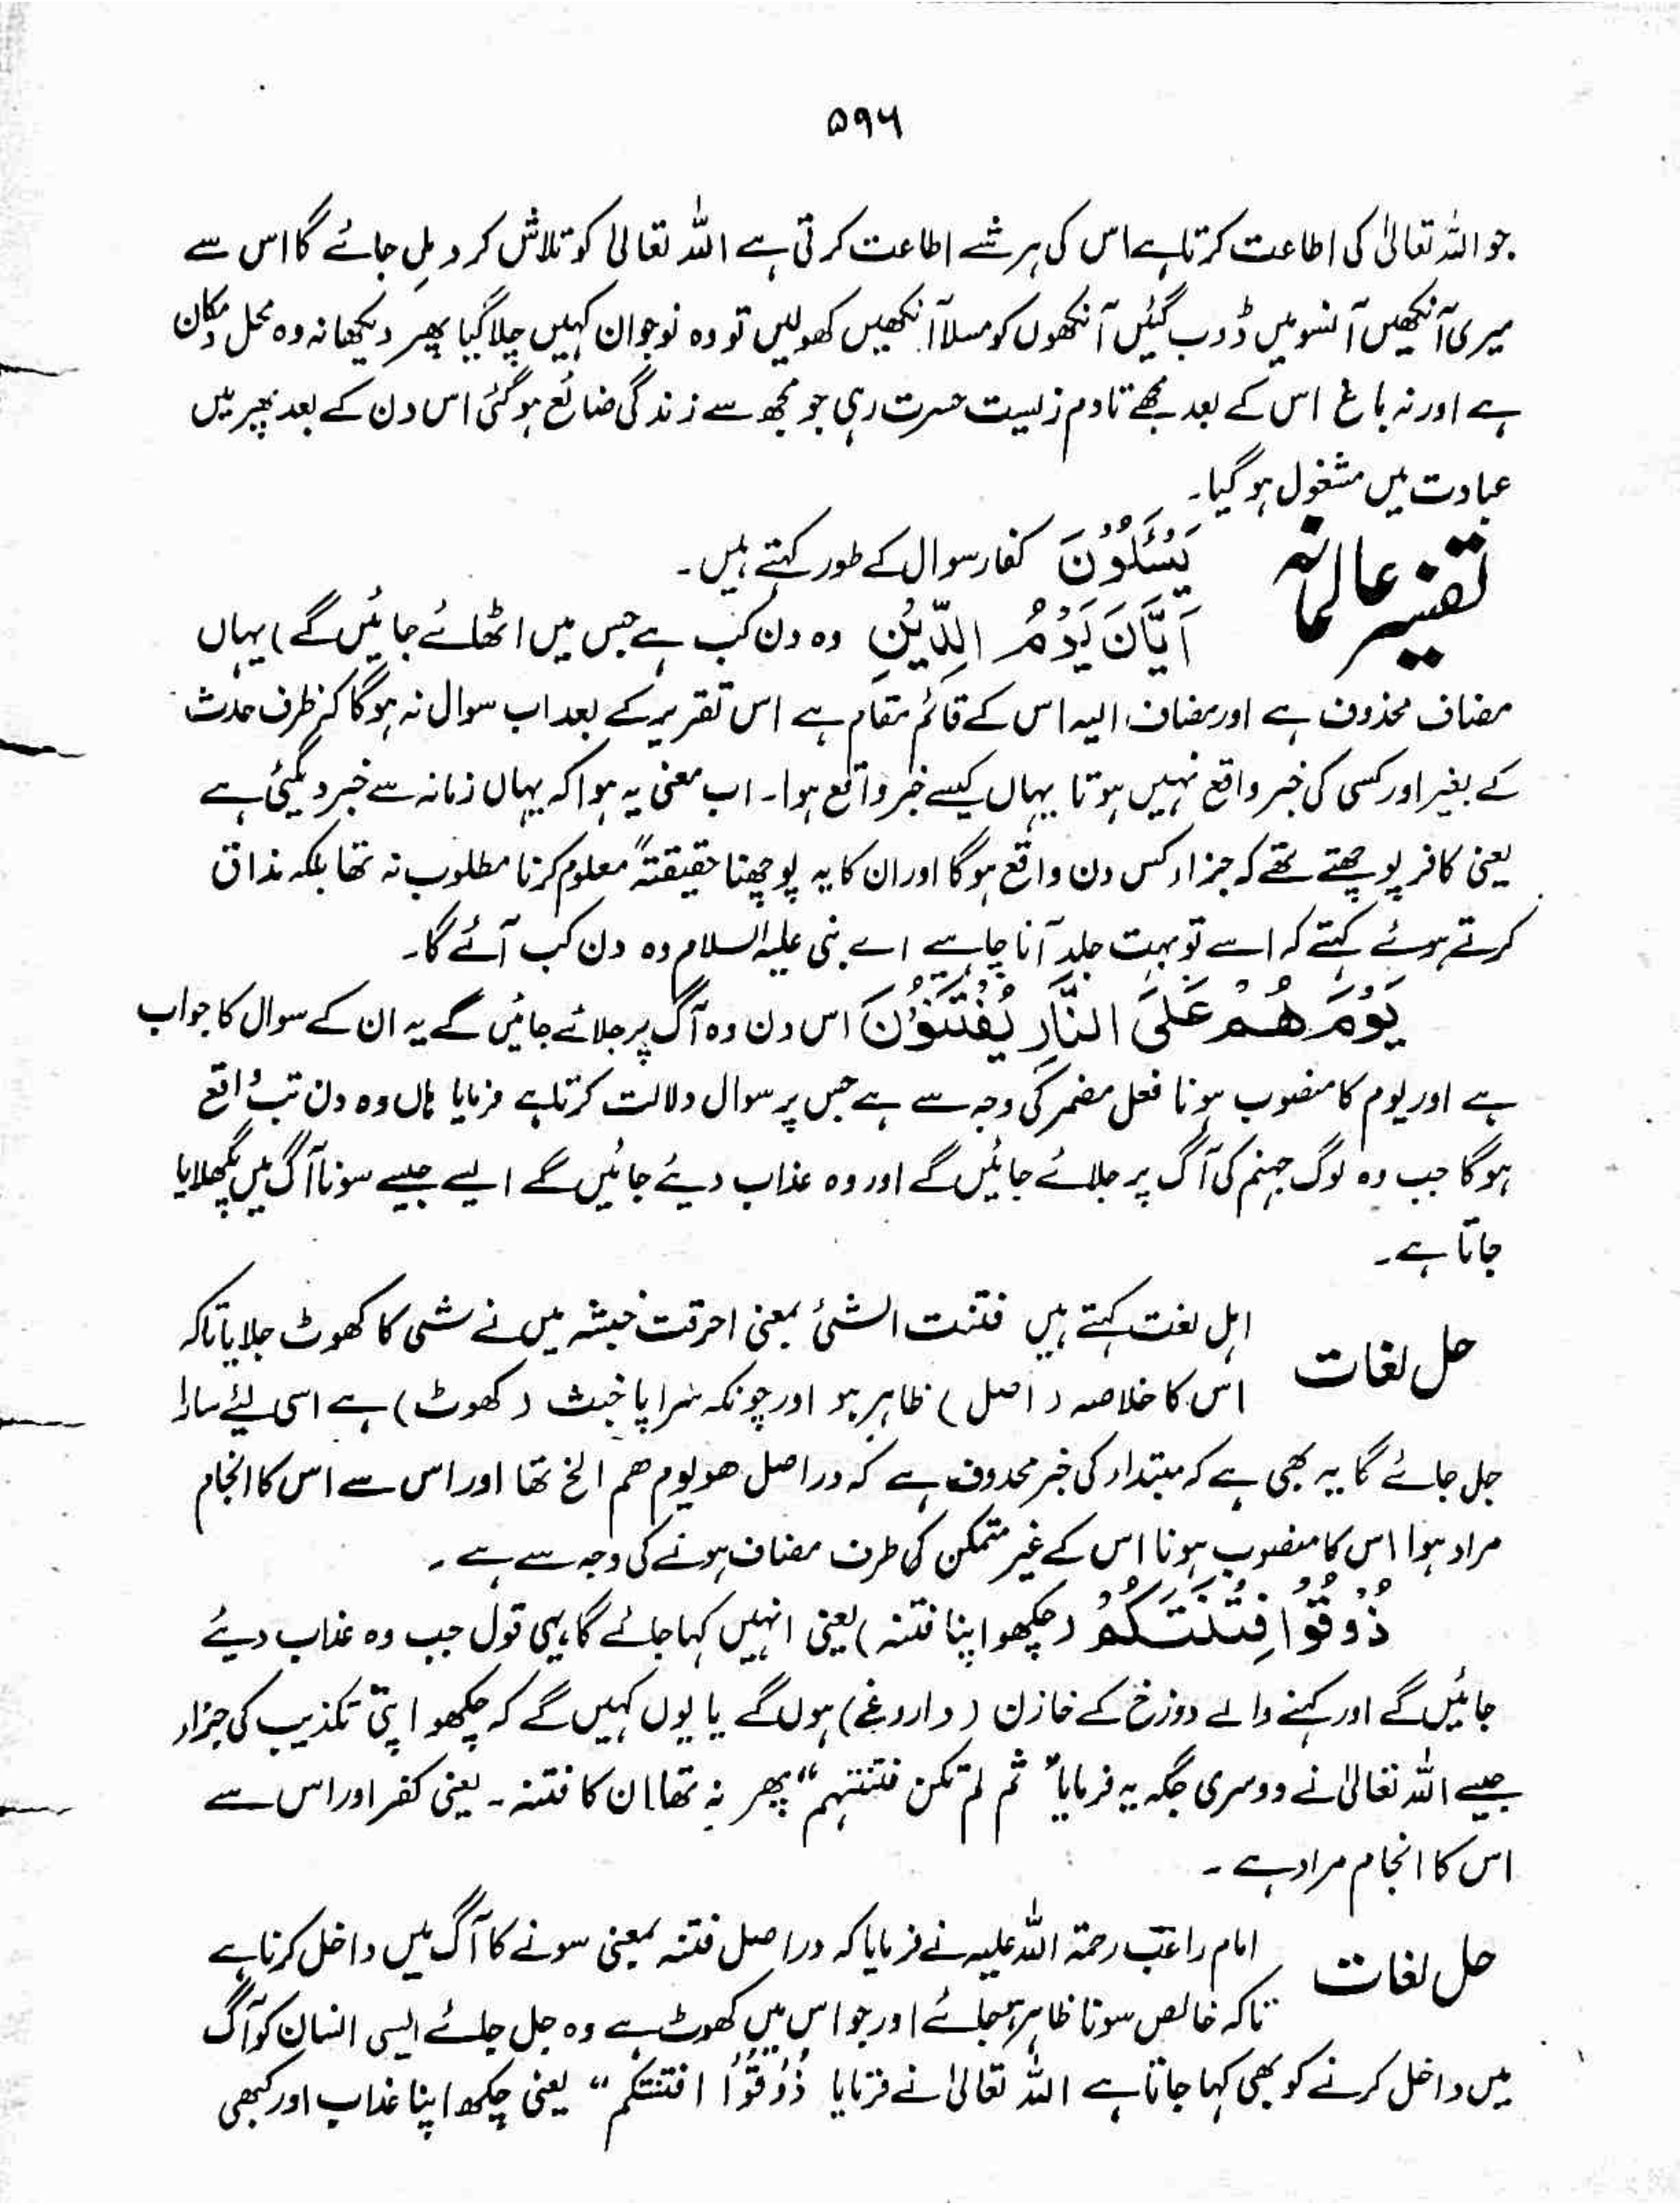 ۵۹۶
جو اللہ تعالیٰ کی اطاعت کرتا ہے اس کی ہر شے اطاعت کرتی ہے اللہ تعالیٰ کو تلاش کرو مل جائے گا اس سے
میری آنکھیں آنسو میں ڈوب گئیں آنکھوں کو مسلا آنکھیں کھولیں تو وہ نوجوان کہیں چلا گیا پھر دیکھا نہ وہ محل و مکان
ہے اور نہ باغ اس کے بعد مجھے تادم زیست حسرت رہی جو مجھ سے زندگی ضائع ہو گئی اس دن کے بعد پھر میں
عبادت میں مشغول ہو گیا۔
تفسیر عالمانہ
یَسْئَلُوْنَ کفار سوال کے طور کہتے ہیں۔
اَیَّانَ یَوْمُ الدِّیْنِ وہ دن کب ہے جس میں اٹھائے جائیں گے) یہاں
مضاف محذوف ہے اور مضاف الیہ اس کے قائم مقام ہے اس تقریر کے بعد اب سوال نہ ہو گا کہ ظرف حدث
کے بغیر اور کسی کی خبر واقع نہیں ہوتا یہاں کیسے خبر واقع ہوا۔ اب معنی یہ ہوا کہ یہاں زمانہ سے خبر دی گئی ہے
یعنی کافر پوچھتے تھے کہ جزاء کس دن واقع ہو گا اور ان کا یہ پوچھنا حقیقتہً معلوم کرنا مطلوب نہ تھا بلکہ مذاق
کرتے ہوئے کہتے کہ اسے تو بہت جلد آنا چاہیے اے نبی علیہ السلام وہ دن کب آئے گا۔
یَوْمَ هُمْ عَلَی النَّارِ یُفْتَنُوْنَ اس دن وہ آگ پر جلائے جائیں گے یہ ان کے سوال کا جواب
ہے اور یوم کا منصوب ہونا فعل مضمر کی وجہ سے ہے جس پر سوال دلالت کرتا ہے فرمایا ہاں وہ دن تب واقع
ہو گا جب وہ لوگ جہنم کی آگ پر جلائے جائیں گے اور وہ عذاب دیئے جائیں گے ایسے جیسے سونا آگ میں پگھلایا
جاتا ہے۔
حل لغات
اہل لغت کہتے ہیں فتنت الشئ بمعنی احرقت خبثہ میں نے شی کا کھوٹ جلایا تاکہ
اس کا خلاصہ (اصل) ظاہر ہو اور چونکہ سراپا خبث (کھوٹ) ہے اسی لئے سارا
جل جائے گا یہ بھی ہے کہ مبتداء کی خبر محذوف ہے کہ دراصل ھو یوم ھم الخ تھا اور اس سے اس کا انجام
مراد ہوا اس کا منصوب ہونا اس کے غیر متمکن کی طرف مضاف ہونے کی وجہ سے ہے۔
ذُوْقُوْا فِتْنَتَكُمْ (چکھو اپنا فتنہ) یعنی انہیں کہا جائے گا یہی قول جب وہ عذاب دیئے
جائیں گے اور کہنے والے دوزخ کے خازن (داروغے) ہوں گے یا یوں کہیں گے کہ چکھو اپنی تکذیب کی جزاء
جیسے اللہ تعالیٰ نے دوسری جگہ یہ فرمایا "ثم لم تکن فتنتہم" پھر نہ تھا ان کا فتنہ۔ یعنی کفر اور اس سے
اس کا انجام مراد ہے۔
حل لغات
امام راغب رحمۃ اللہ علیہ نے فرمایا کہ دراصل فتنہ بمعنی سونے کا آگ میں داخل کرنا ہے
تاکہ خالص سونا ظاہر ہو جائے اور جو اس میں کھوٹ ہے وہ جل جائے ایسی انسان کو آگ
میں داخل کرنے کو بھی کہا جاتا ہے اللہ تعالیٰ نے فرمایا ذُوْقُوْا افتنتکم" یعنی چکھو اپنا عذاب اور کبھی